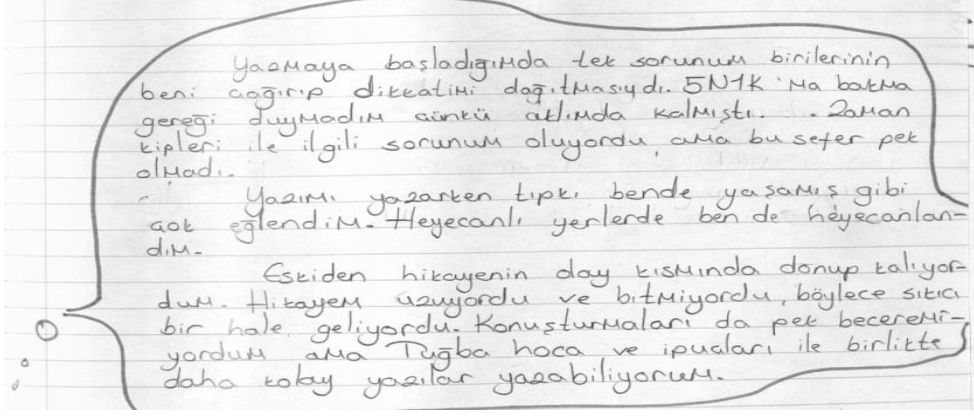 Yazmaya başladığımda tek sorunum birilerinin
beni çağırıp dikkatimi dağıtmasıydı. 5N1K 'ma bakma
gereği duymadım çünkü aklımda kalmıştı. . Zaman
kipleri ile ilgili sorunum oluyordu ama bu sefer pek
olmadı.
Yazımı yazarken tıpkı bende yaşamış gibi
çok eğlendim. Heyecanlı yerlerde ben de heyecanlan-
dım.
Eskiden hikayenin olay kısmında donup kalıyor-
dum. Hikayem uzuyordu ve bitmiyordu, böylece sıkıcı
bir hale geliyordu. Konuşturmaları da pek beceremi-
yordum ama Tuğba hoca ve ipuçları ile birlikte
daha kolay yazılar yazabiliyorum.